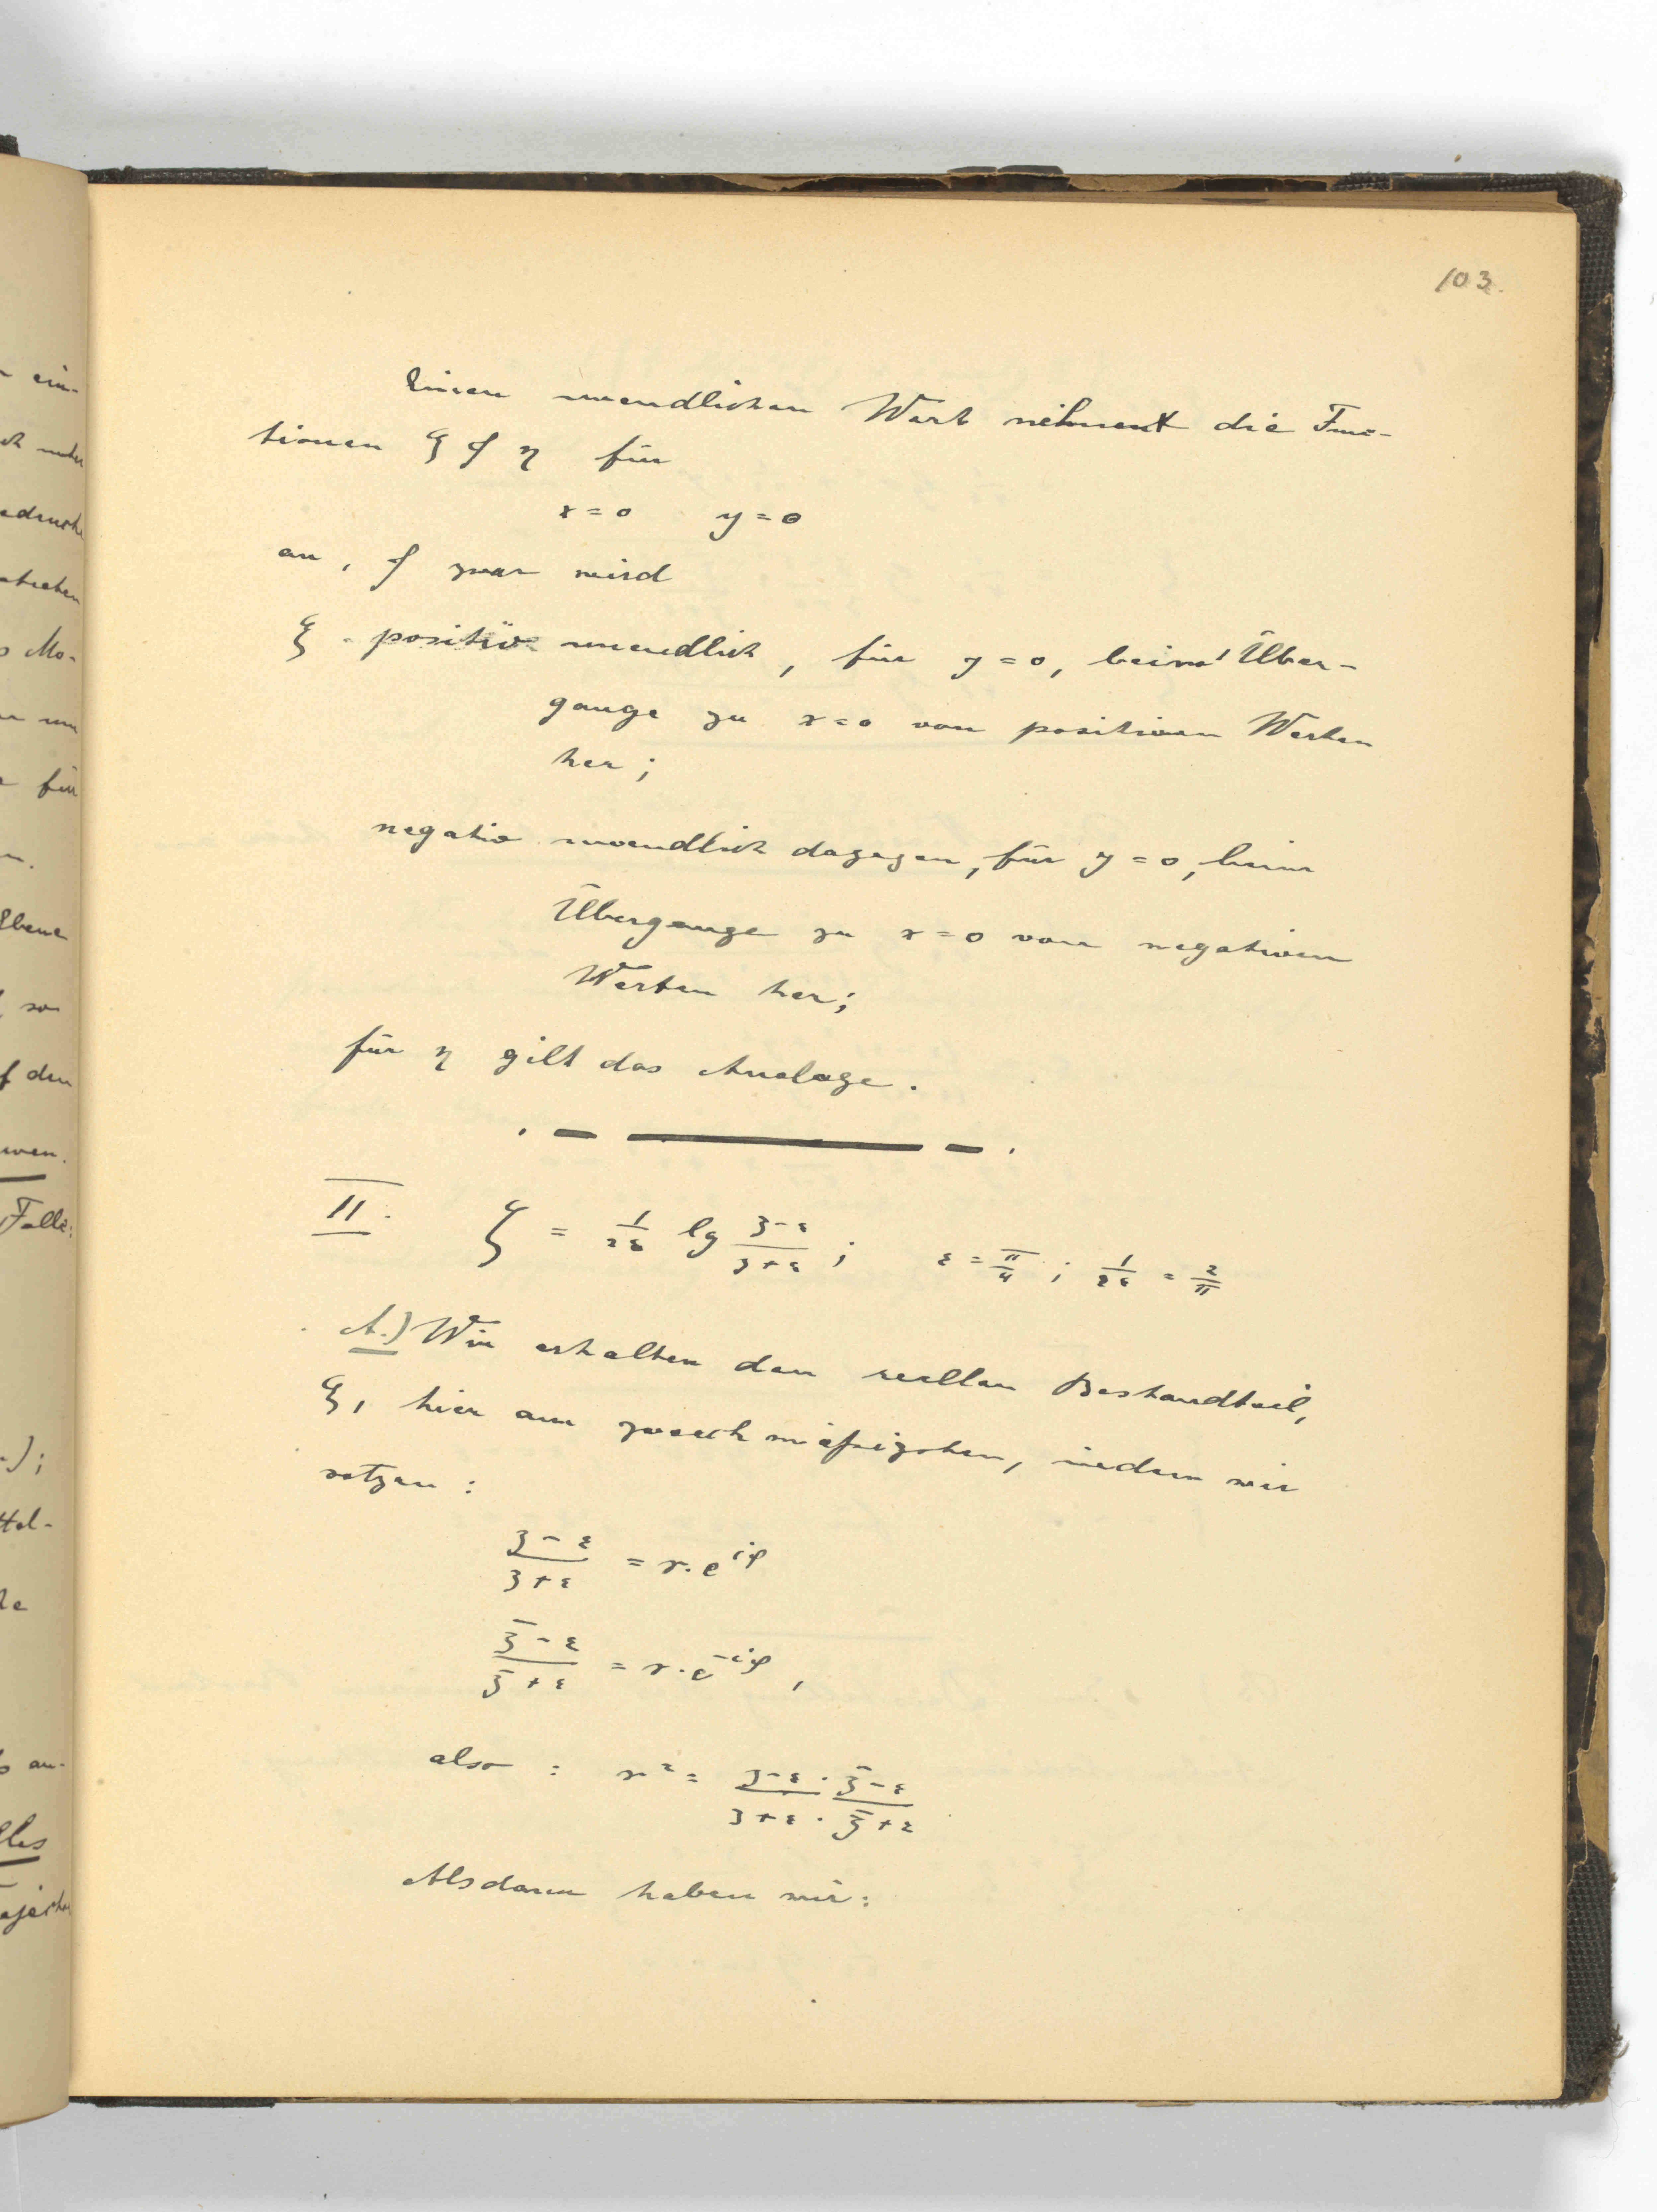 103.
Einen unendlichen Wert nehment die Func-
tionen ξ & η für
x = 0 y = 0
an, & zwar wird
ξ positiv unendlich, für y = 0, beim Über-
gange zu x = 0 von positiven Werten
her;
negativ unendlich dagegen, für y = 0, beim
Übergange zu x = 0 von negativen
Werten her;
für η gilt das Analoge.
II. ζ = 1/2ε lg (z-ε)/(z+ε) ; ε = π/4 ; 1/2ε = 2/π
A.) Wir erhalten den reellen Bestandteil,
ξ, hier am zweckmäßigsten, indem wir
setzen :
(z-ε)/(z+ε) = r. e^{iφ}
(z̄-ε)/(z̄+ε) = r. e^{-iφ},
also : r² = (z-ε)/(z+ε) · (z̄-ε)/(z̄+ε)
Alsdann haben wir:
ein-
Mo-
für
Ebene
so
f den
Falle:
ttel-
an-